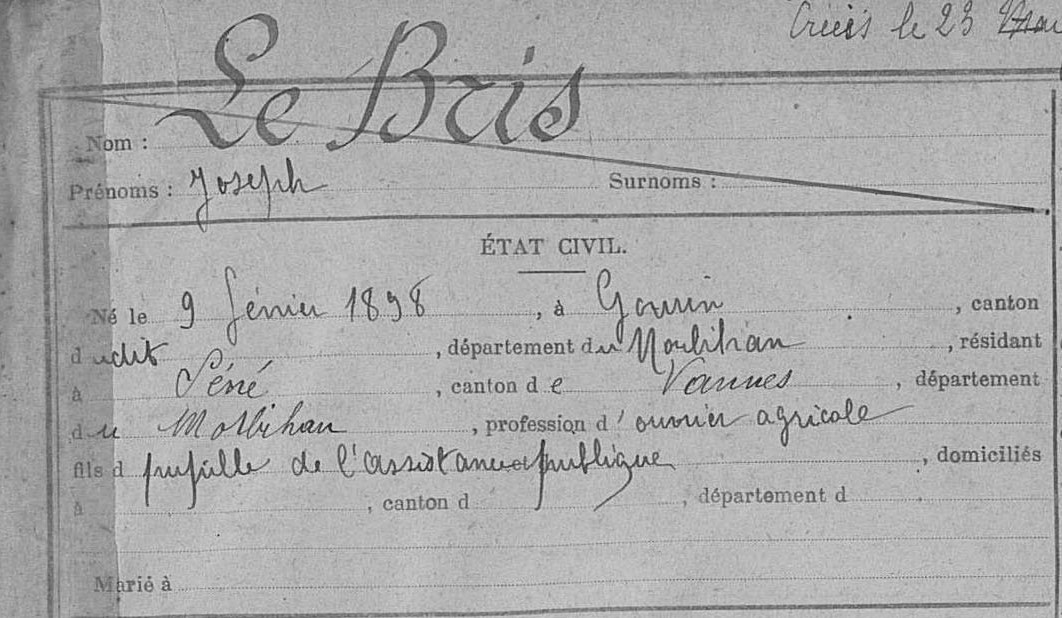 le 23 Mai
Nom : Le Bris
Prénoms : Joseph Surnoms :
ÉTAT CIVIL.
Né le 9 février 1898, à Gourin, canton
dudit, département du Morbihan, résidant
à Séné, canton de Vannes, département
du Morbihan, profession d'ouvrier agricole
fils d pupille de l'assistance publique, domiciliés
à , canton d , département d
Marié à